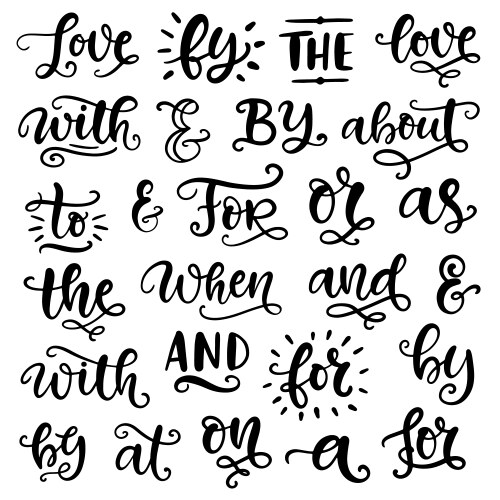 Love by THE love
with & BY. about
to & For or as
the When and &
with AND for by
by at on a for